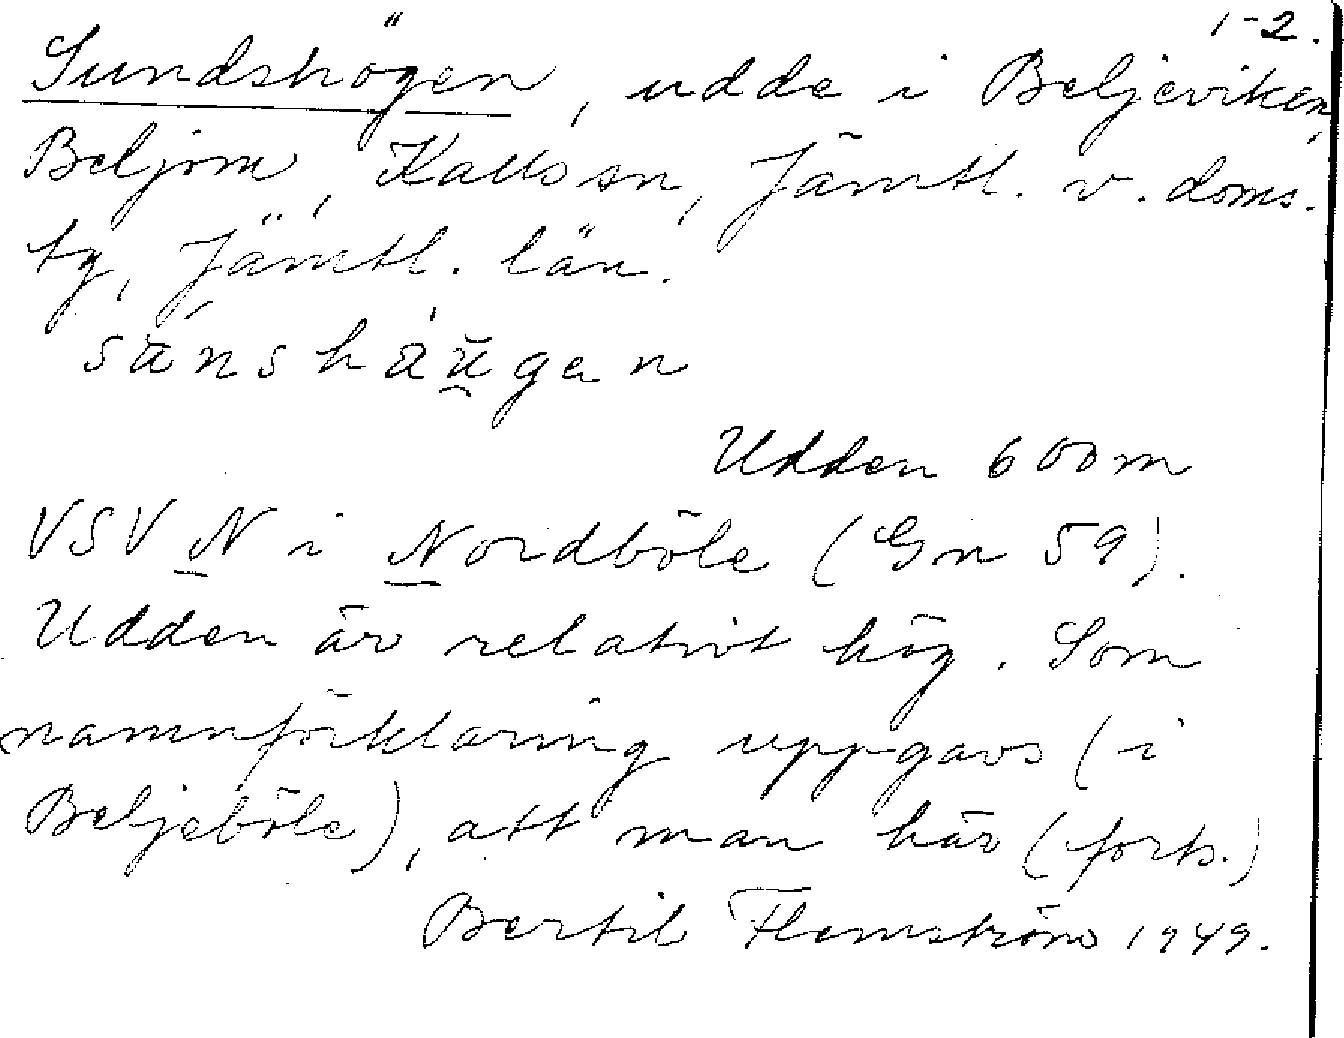 1-2.
Sundshögen, udde i Beljeviken,
Beljom, Kalls sn, Jämtl. v. doms.
tg, Jämtl. län.
Udden 600 m
VSV N i Nordböle (Gn 59).
Udden är relativt hög. Som
namnförklaring uppgavs (i
Beljeböle), att man här (forts.)
Bertil Flemström 1949.